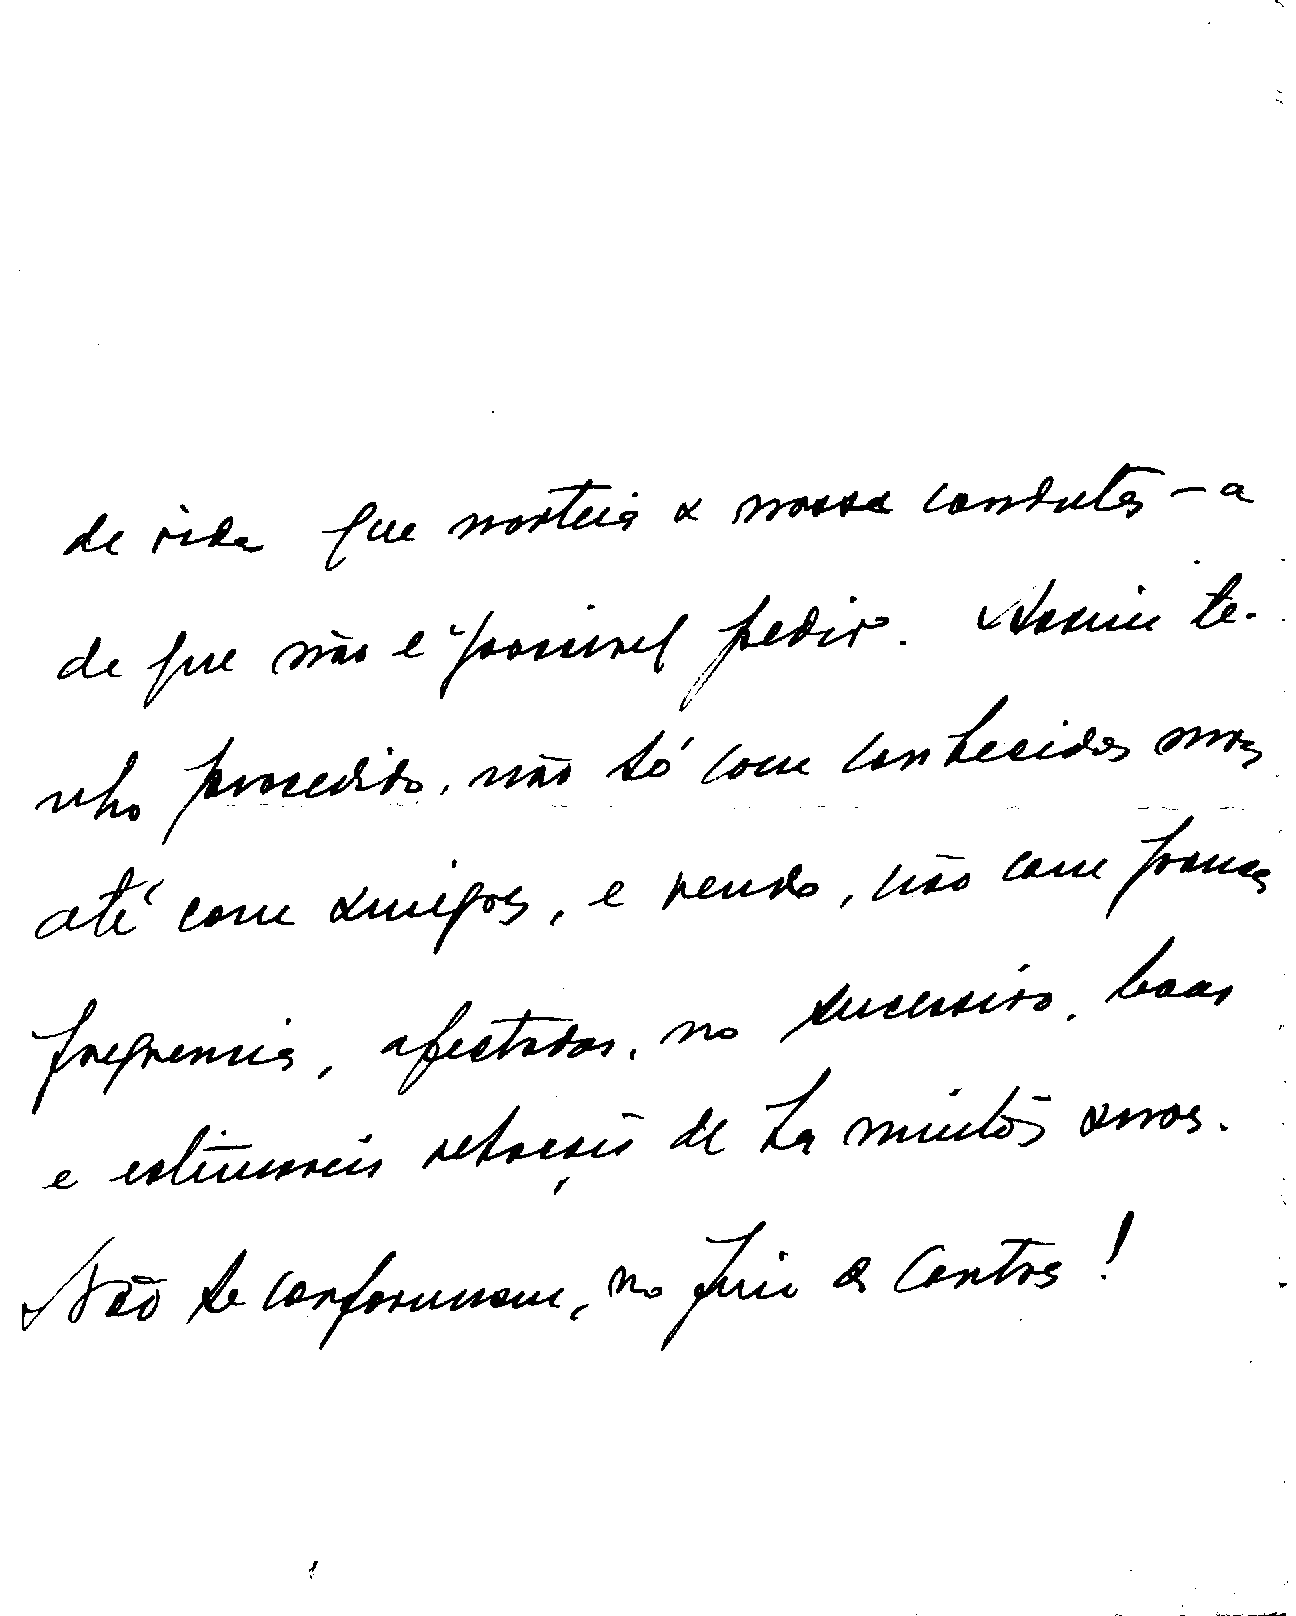 de vida que norteia a nossa conduta - a
de que não é possivel pedir. Assim te-
nho procedido, não só com conhecidos mas
até com amigos, e vendo, não com pouca
frequencia, afectadas, no sucessivo, boas
e estimaveis relações de ha muitos anos.
Não se conformam, no fim de contas!